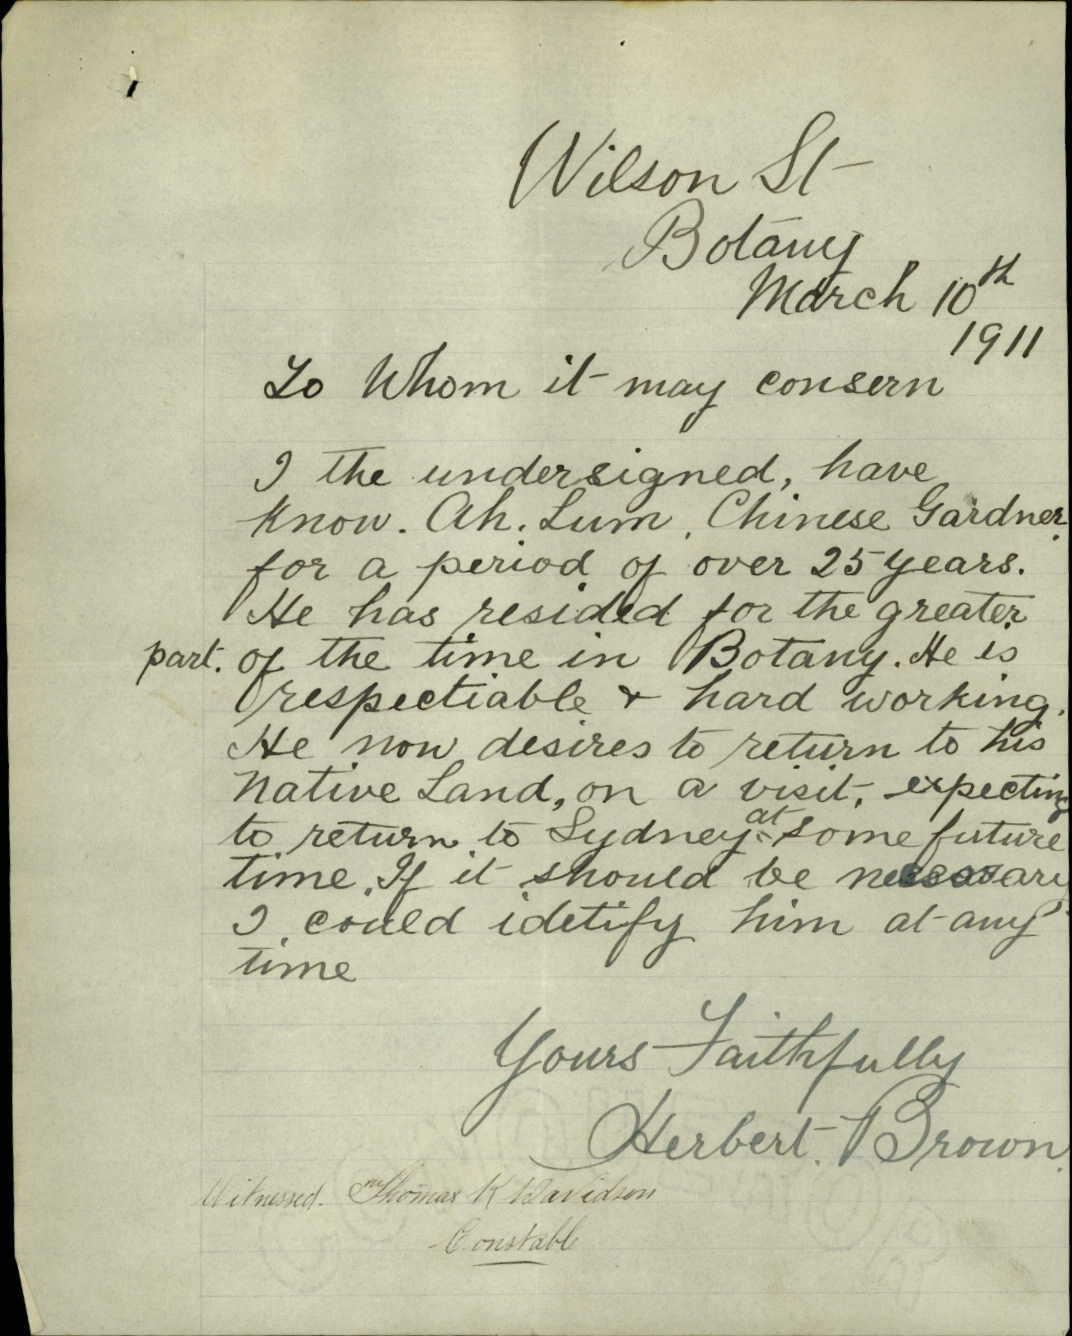 Wilson St
Botany
March 10th
1911
To Whom it may consern
I the undersigned, have
know. Ah. Lum, Chinese Gardner.
for a period of over 25 years.
He has resided for the greater
part. of the time in Botany. He is
respectiable & hard working.
He now desires to return to his
Native Land, on a visit, expecting
to return to Sydney at some future
time. If it should be necessary
I could idetify him at any
time
Yours Faithfully
Herbert. Brown.
Witnessed. Thomas K Davidson
Constable